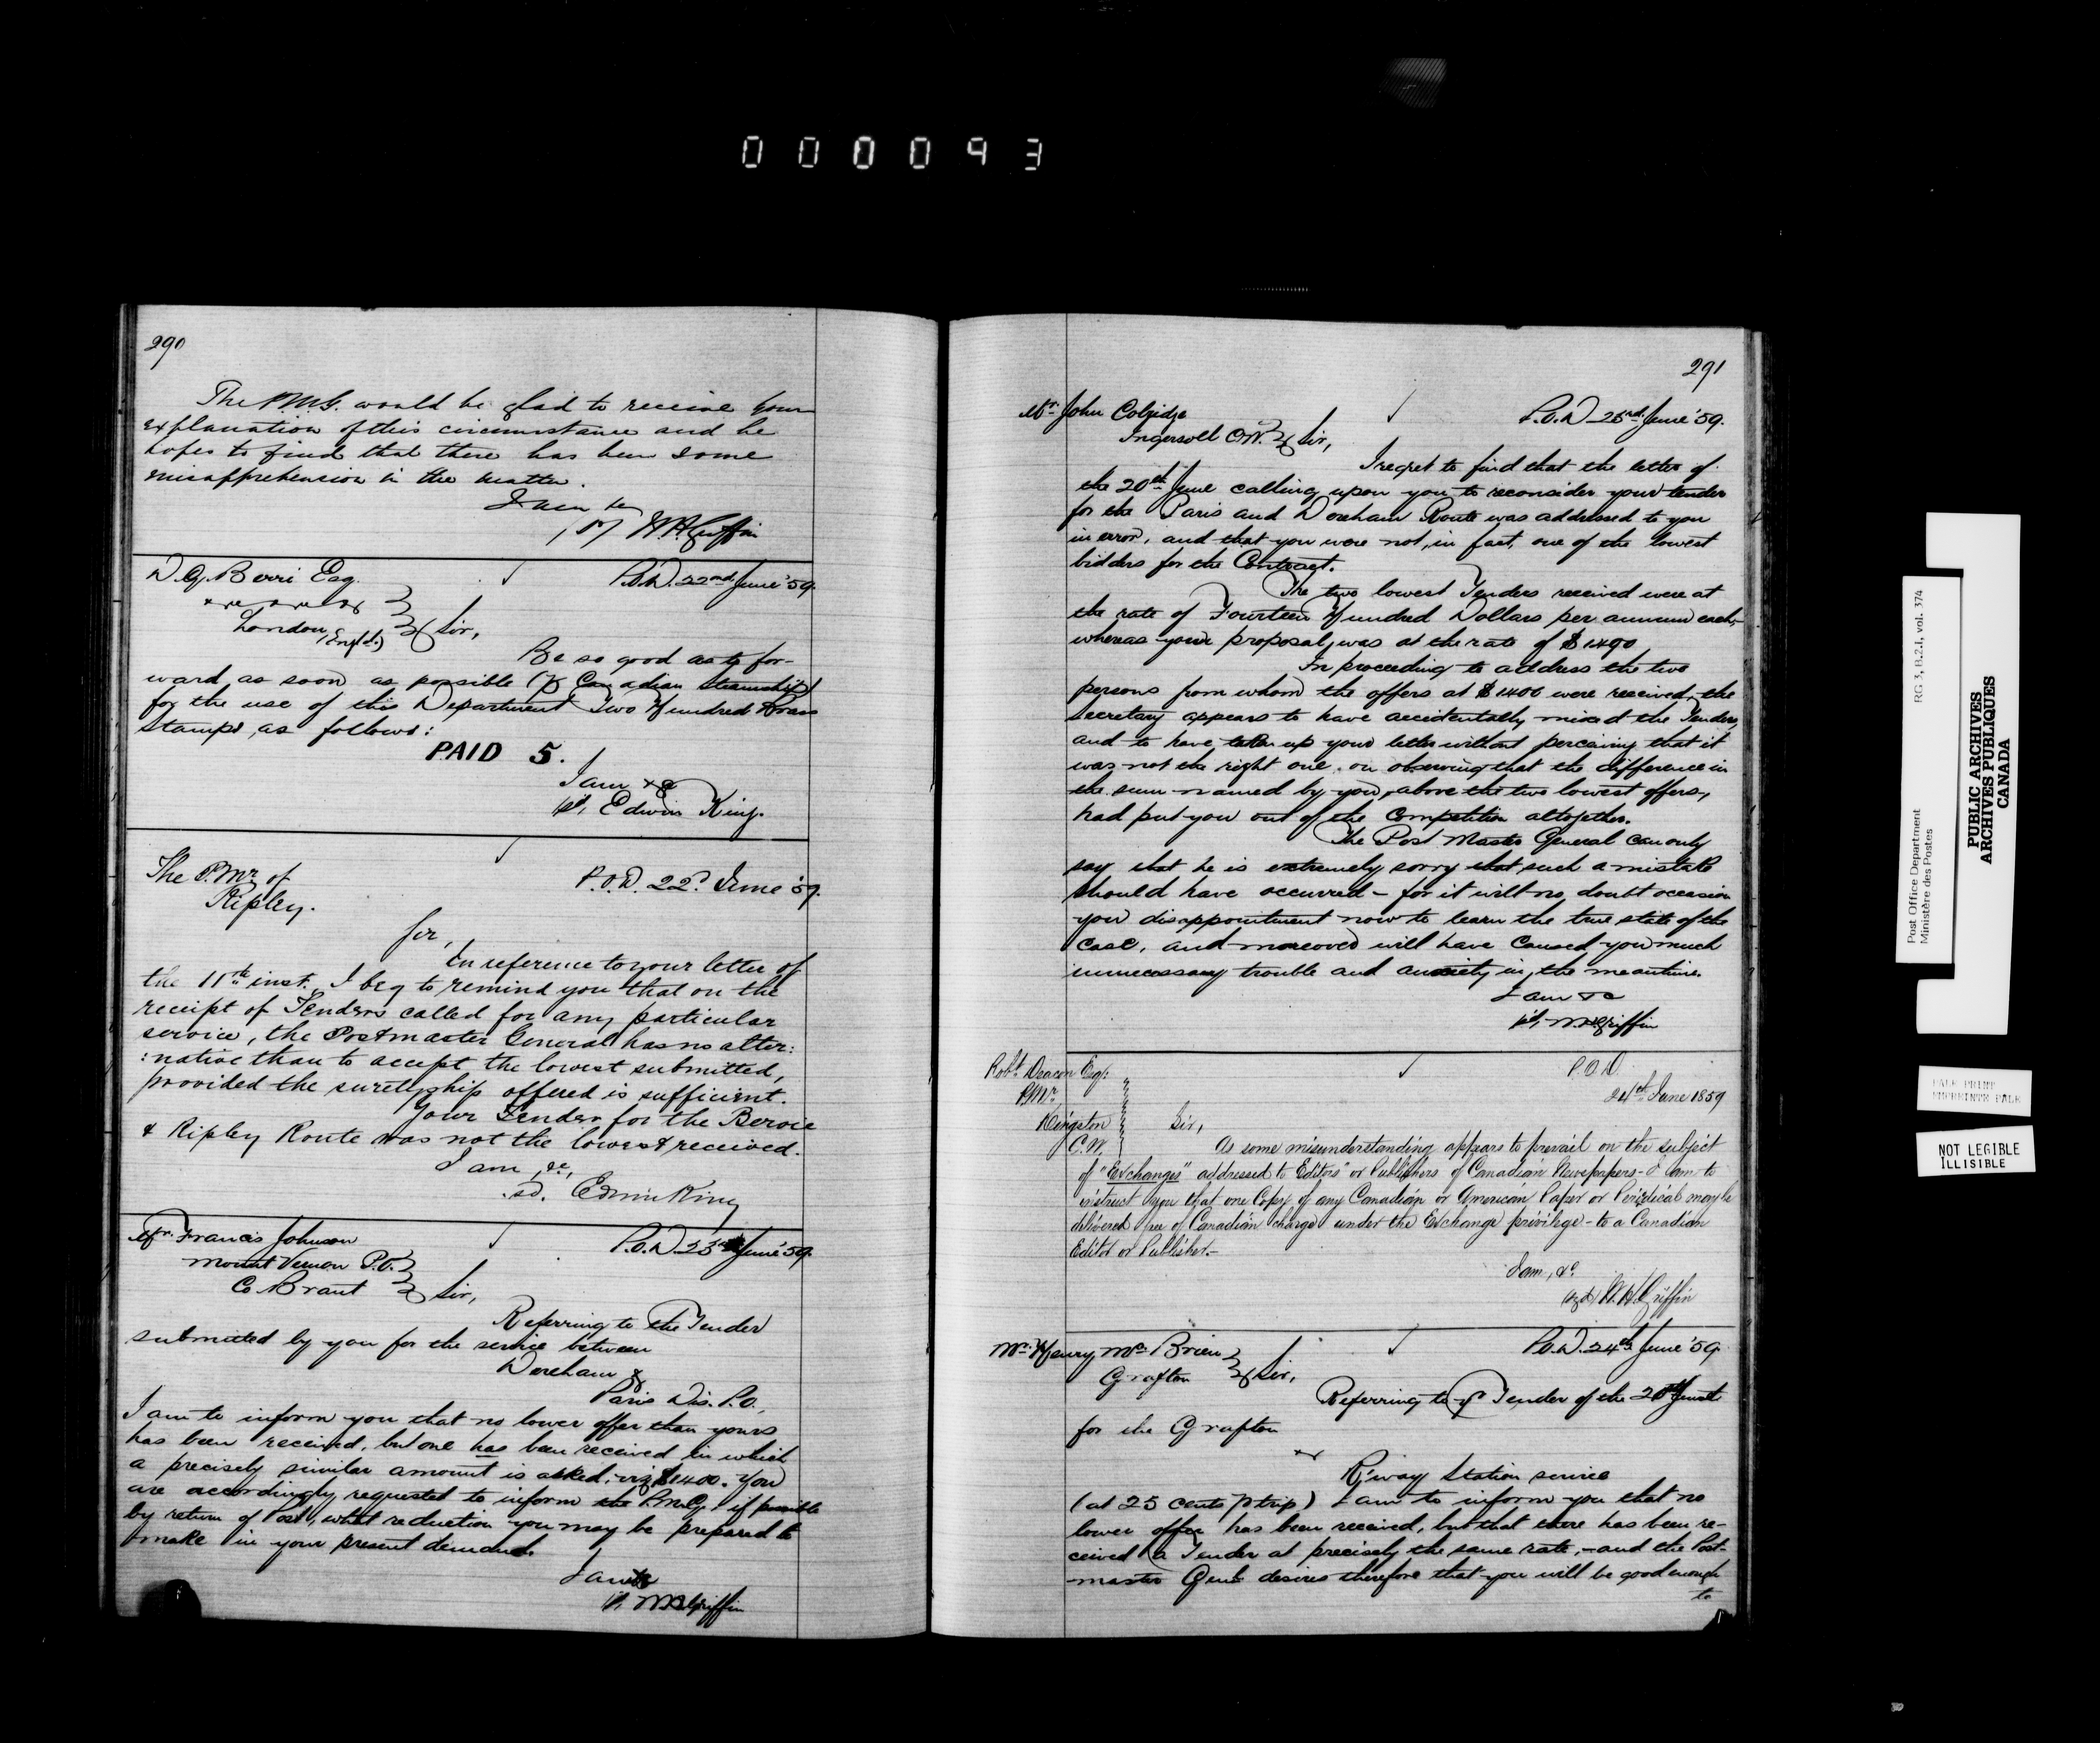 000093
290
The P.M.G. would be glad to receive your
explanation of this circumstance and he
hopes to find that there has been some
misapprehension in the matter.
I am &c
W.H. Griffin
D.G. Berri Esq.
London, (Engld.)
P.O.D. 22nd June '59.
Sir,
Be so good as to for-
ward as soon as possible (p Canadian Steamship)
for the use of this Department Two Hundred Brass
Stamps, as follows:
PAID 5.
I am &c
sd, Edwin King.
The P.Mr. of
Ripley.
P.O.D. 22d June '59.
Sir,
In reference to your letter of
the 11th inst. I beg to remind you that on the
receipt of Tenders called for any particular
service, the Postmaster General has no alter:
:native than to accept the lowest submitted,
provided the suretyship offered is sufficient.
Your Tender for the Bervie
& Ripley Route was not the lowest received.
I am, &c,
sd. Edwin King
Mr. Francis Johnson
Mount Vernon P.O.
Co. Brant
P.O.D. 23rd June '59.
Sir,
Referring to the Tender
submitted by you for the service between
Dereham &
Paris Dis. P.O.,
I am to inform you that no lower offer than yours
has been received, but one has been received in which
a precisely similar amount is asked, viz $1400. You
are accordingly requested to inform the P.M.G. if possible
by return of Post, what reduction you may be prepared to
make in your present demand.
I am &c
W.H. Griffin
291
Mr. John Colridge
Ingersoll C.W.
P.O.D. 23rd June '59.
Sir,
I regret to find that the letter of
the 20th June calling upon you to reconsider your tender
for the Paris and Dereham Route was addressed to you
in error, and that you were not, in fact, one of the lowest
bidders for the Contract.
The two lowest Tenders received were at
the rate of Fourteen Hundred Dollars per annum each,
whereas your proposal, was at the rate of $1490
In proceeding to address the two
persons from whom the offers at $1400 were received, the
Secretary appears to have accidentally mixed the Tenders,
and to have taken up your letter without perceiving that it
was not the right one, on observing that the difference in
the sum named by you, above the two lowest offers,
had put you out of the Competition altogether.
The Post Master General can only
say that he is extremely sorry that such a mistake
should have occurred - for it will no doubt occasion
you disappointment now to learn the true state of the
case, and moreover will have caused you much
unnecessary trouble and anxiety in the meantime.
I am &c
sd, W.H. Griffin
Robt. Deacon Esqr.
P.Mr.
Kingston
C.W.
P.O.D.
June 1859
Sir,
As some misunderstanding appears to prevail on the subject
of "Exchanges" addressed to Editors or Publishers of Canadian Newspapers - I am to
instruct you that one Copy of any Canadian or American Paper or Periodical may be
delivered free of Canadian charge under the Exchange privilege - to a Canadian
Editor or Publisher.-
I am, &c.
(sgd) W.H. Griffin
Mr. Henry McBrien
Grafton
P.O.D. 24th June '59
Sir,
Referring to yr Tender of the 20th
for the Grafton
&
R'way Station service
(at 25 cents p trip) I am to inform you that no
lower offer has been received, but that there has been re-
ceived a Tender at precisely the same rate, - and the Post-
master Genl. desires therefore that you will be good enough
to
Post Office Department
Ministère des Postes
RG 3, B.2.I, vol. 374
PUBLIC ARCHIVES
ARCHIVES PUBLIQUES
CANADA
PALE PRINT
EMPREINTE PALE
NOT LEGIBLE
ILLISIBLE